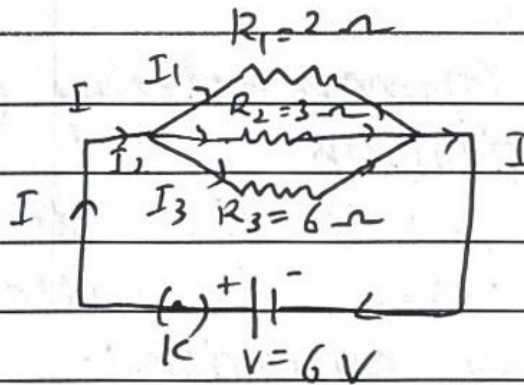 R₁ = 2 Ω
I₁
I
R₂ = 3 Ω
I₂
I
I
I₃
R₃ = 6 Ω
+
-
K
V = 6 V